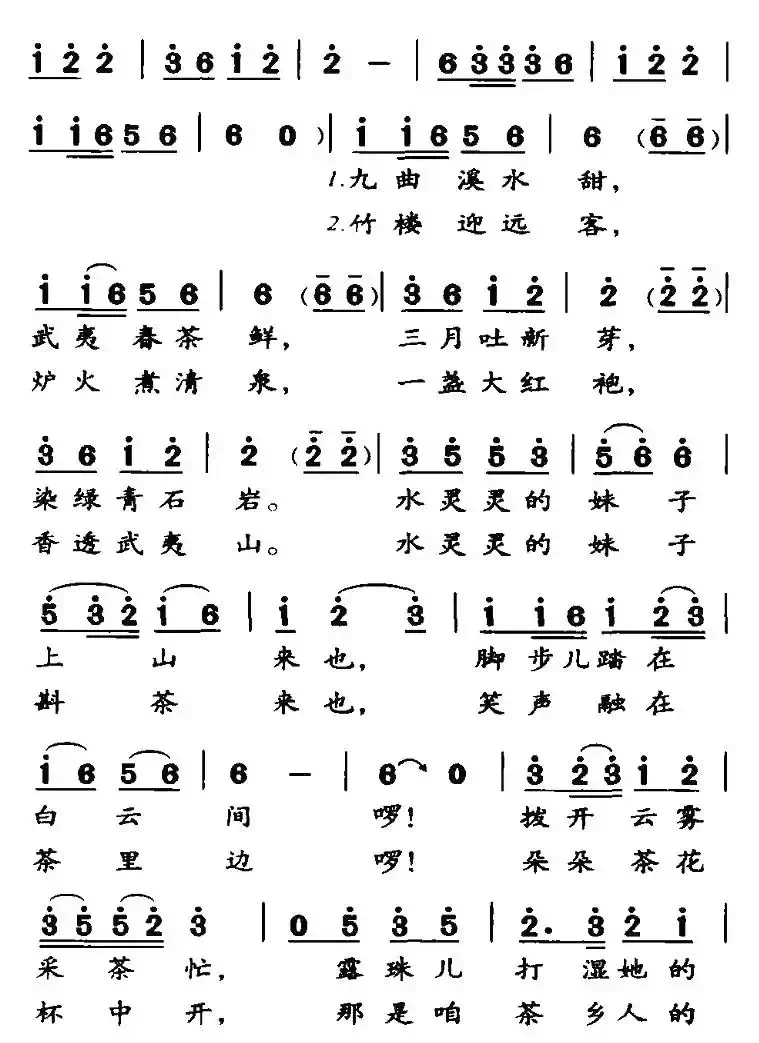 i 2 2 | 3 6 i 2 | 2 — | 6 3 3 3 6 | i 2 2 |
i i 6 5 6 | 6 0 ) | i i 6 5 6 | 6 ( 6 6 ) |
1.九曲溪水甜，
2.竹楼迎远客，
i i 6 5 6 | 6 ( 6 6 ) | 3 6 i 2 | 2 ( 2 2 ) |
武夷春茶鲜，三月吐新芽，
炉火煮清泉，一盏大红袍，
3 6 i 2 | 2 ( 2 2 ) | 3 5 5 3 | 5 6 6 |
染绿青石岩。水灵灵的妹子
香透武夷山。水灵灵的妹子
5 3 2 i 6 | i 2 3 | i i 6 i 2 3 |
上山来也，脚步儿踏在
斟茶来也，笑声融在
i 6 5 6 | 6 — | 6 0 | 3 2 3 i 2 |
白云间啰！拨开云雾
茶里边啰！朵朵茶花
3 5 5 2 3 | 0 5 3 5 | 2. 3 2 i |
采茶忙，露珠儿打湿她的
杯中开，那是咱茶乡人的